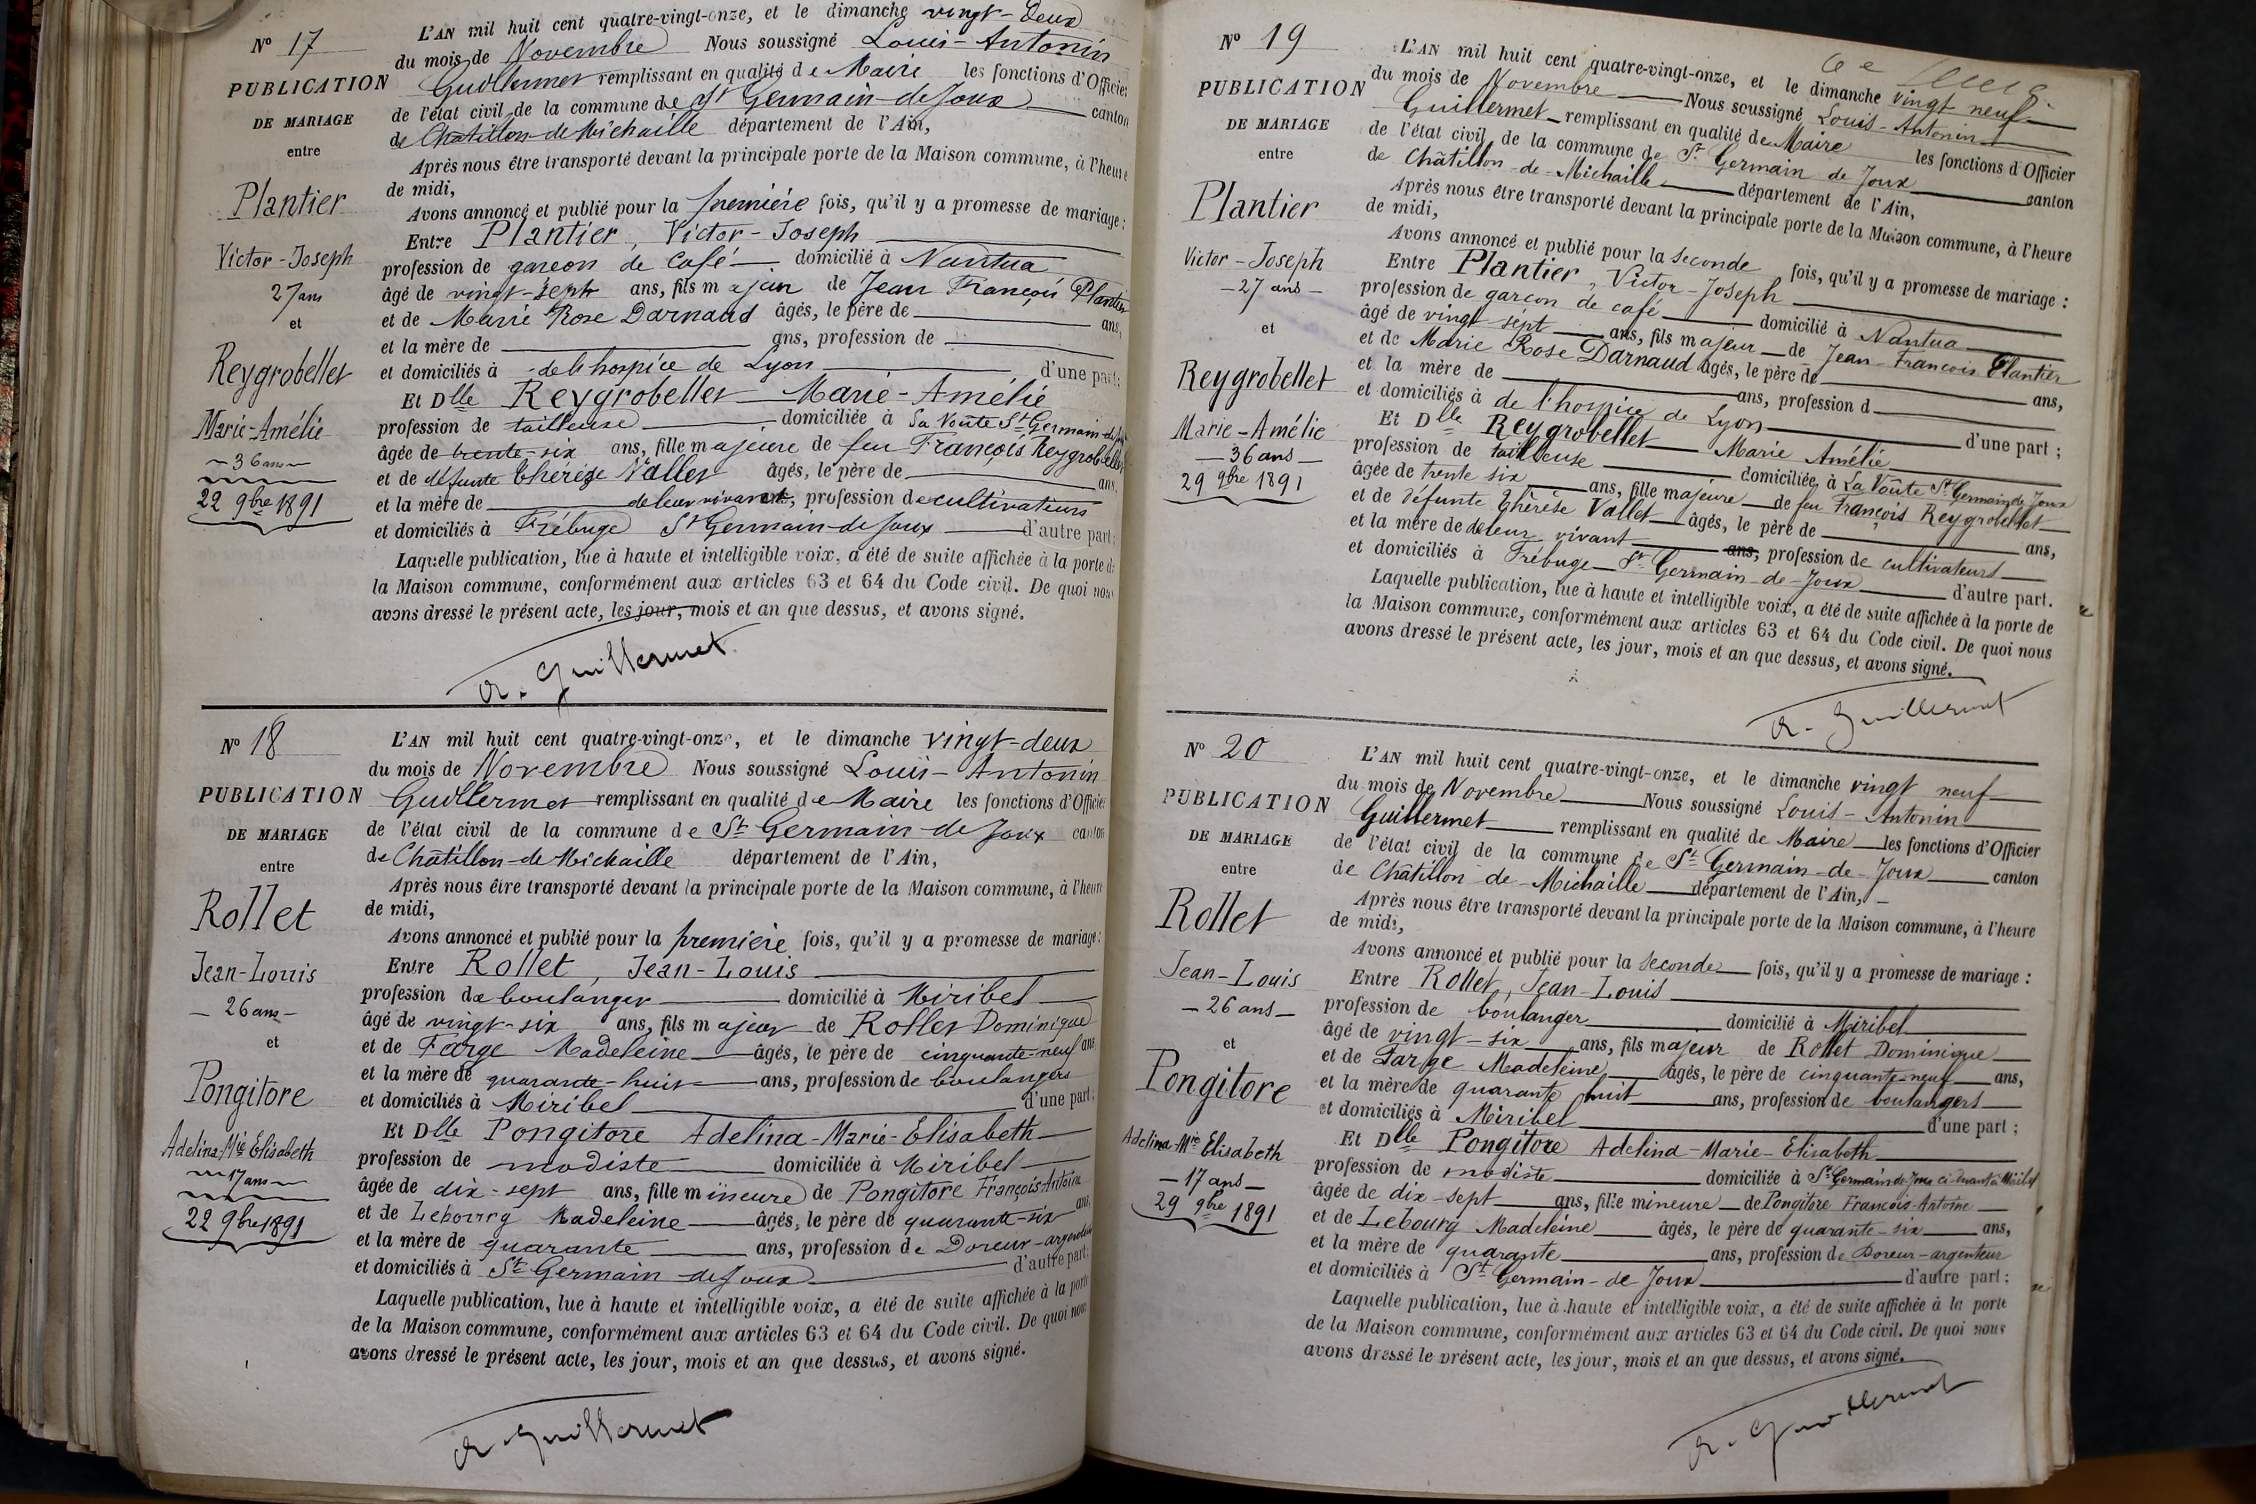 Nº 17
PUBLICATION
DE MARIAGE
entre
Plantier
Victor-Joseph
27 ans
et
Reygrobellet
Marie-Amélie
36 ans
22 9bre 1891
L'AN mil huit cent quatre-vingt-onze, et le dimanche vingt-deux
du mois de Novembre Nous soussigné Louis-Antonin
Guillermet remplissant en qualité de Maire les fonctions d'Officier
de l'état civil de la commune de St Germain-de-Joux canton
de Châtillon-de-Michaille département de l'Ain,
Après nous être transporté devant la principale porte de la Maison commune, à l'heure
de midi,
Avons annoncé et publié pour la première fois, qu'il y a promesse de mariage :
Entre Plantier, Victor-Joseph
profession de garçon de café domicilié à Nantua
âgé de vingt-sept ans, fils majeur de Jean François Plantier
et de Marie Rose Darnaud âgés, le père de ans,
et la mère de ans, profession de
et domiciliés à de l'hospice de Lyon d'une part;
Et Dlle Reygrobellet Marie-Amélie
profession de tailleuse domiciliée à La Voûte St Germain-de-Joux
âgée de trente-six ans, fille majeure de feu François Reygrobellet
et de défunte Thérèse Vallet âgés, le père de ans,
et la mère de de leur vivant, profession de cultivateurs
et domiciliés à Frébuge St Germain-de-Joux d'autre part;
Laquelle publication, lue à haute et intelligible voix, a été de suite affichée à la porte de
la Maison commune, conformément aux articles 63 et 64 du Code civil. De quoi nous
avons dressé le présent acte, les jour, mois et an que dessus, et avons signé.
A. Guillermet
Nº 18
PUBLICATION
DE MARIAGE
entre
Rollet
Jean-Louis
26 ans
et
Pongitore
Adelina-Mie Elisabeth
17 ans
22 9bre 1891
L'AN mil huit cent quatre-vingt-onze, et le dimanche vingt-deux
du mois de Novembre Nous soussigné Louis-Antonin
Guillermet remplissant en qualité de Maire les fonctions d'Officier
de l'état civil de la commune de St Germain-de-Joux canton
de Châtillon-de-Michaille département de l'Ain,
Après nous être transporté devant la principale porte de la Maison commune, à l'heure
de midi,
Avons annoncé et publié pour la première fois, qu'il y a promesse de mariage :
Entre Rollet, Jean-Louis
profession de boulanger domicilié à Miribel
âgé de vingt-six ans, fils majeur de Rollet Dominique
et de Farge Madeleine âgés, le père de cinquante-neuf ans,
et la mère de quarante-huit ans, profession de boulangers
et domiciliés à Miribel d'une part;
Et Dlle Pongitore Adelina-Marie-Elisabeth
profession de modiste domiciliée à Miribel
âgée de dix-sept ans, fille mineure de Pongitore François-Antoine
et de Lebourg Madeleine âgés, le père de quarante-six ans,
et la mère de quarante ans, profession de Doreur-argenteur
et domiciliés à St Germain-de-Joux d'autre part;
Laquelle publication, lue à haute et intelligible voix, a été de suite affichée à la porte
de la Maison commune, conformément aux articles 63 et 64 du Code civil. De quoi nous
avons dressé le présent acte, les jour, mois et an que dessus, et avons signé.
A. Guillermet
Nº 19
PUBLICATION
DE MARIAGE
entre
Plantier
Victor-Joseph
27 ans
et
Reygrobellet
Marie-Amélie
36 ans
29 9bre 1891
L'AN mil huit cent quatre-vingt-onze, et le dimanche vingt neuf
du mois de Novembre Nous soussigné Louis-Antonin
Guillermet remplissant en qualité de Maire les fonctions d'Officier
de l'état civil de la commune de St Germain de Joux canton
de Châtillon-de-Michaille département de l'Ain,
Après nous être transporté devant la principale porte de la Maison commune, à l'heure
de midi,
Avons annoncé et publié pour la seconde fois, qu'il y a promesse de mariage :
Entre Plantier, Victor-Joseph
profession de garçon de café domicilié à Nantua
âgé de vingt-sept ans, fils majeur de Jean-François Plantier
et de Marie Rose Darnaud âgés, le père de ans,
et la mère de ans, profession d
et domiciliés à de l'hospice de Lyon d'une part ;
Et Dlle Reygrobellet Marie Amélie
profession de tailleuse domiciliée à La Voûte St Germain de Joux
âgée de trente six ans, fille majeure de feu François Reygrobellet
et de défunte Thérèse Vallet âgés, le père de ans,
et la mère de de leur vivant ans, profession de cultivateurs
et domiciliés à Frébuge St Germain-de-Joux d'autre part.
Laquelle publication, lue à haute et intelligible voix, a été de suite affichée à la porte de
la Maison commune, conformément aux articles 63 et 64 du Code civil. De quoi nous
avons dressé le présent acte, les jour, mois et an que dessus, et avons signé.
A. Guillermet
Nº 20
PUBLICATION
DE MARIAGE
entre
Rollet
Jean-Louis
26 ans
et
Pongitore
Adelina-Mie Elisabeth
17 ans
29 9bre 1891
L'AN mil huit cent quatre-vingt-onze, et le dimanche vingt neuf
du mois de Novembre Nous soussigné Louis-Antonin
Guillermet remplissant en qualité de Maire les fonctions d'Officier
de l'état civil de la commune de St Germain-de-Joux canton
de Châtillon-de-Michaille département de l'Ain,
Après nous être transporté devant la principale porte de la Maison commune, à l'heure
de midi,
Avons annoncé et publié pour la seconde fois, qu'il y a promesse de mariage :
Entre Rollet, Jean-Louis
profession de boulanger domicilié à Miribel
âgé de vingt-six ans, fils majeur de Rollet Dominique
et de Farge Madeleine âgés, le père de cinquante-neuf ans,
et la mère de quarante huit ans, profession de boulangers
et domiciliés à Miribel d'une part ;
Et Dlle Pongitore Adelina-Marie-Elisabeth
profession de modiste domiciliée à St Germain-de-Joux ci-devant à Miribel
âgée de dix-sept ans, fille mineure de Pongitore François-Antoine
et de Lebourg Madeleine âgés, le père de quarante-six ans,
et la mère de quarante ans, profession de Doreur-argenteur
et domiciliés à St Germain-de Joux d'autre part ;
Laquelle publication, lue à haute et intelligible voix, a été de suite affichée à la porte
de la Maison commune, conformément aux articles 63 et 64 du Code civil. De quoi nous
avons dressé le présent acte, les jour, mois et an que dessus, et avons signé.
A. Guillermet